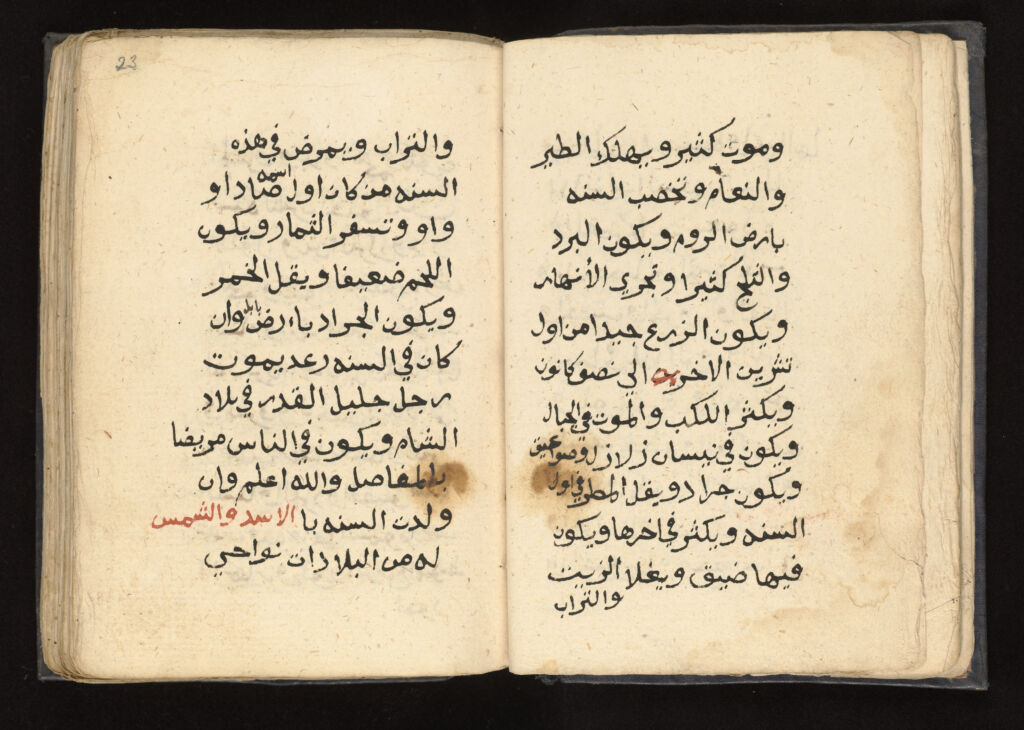 وموت كثير ويهلك الطير
والنعام وتخصب السنه
بارض الروم ويكون البرد
والثلج كثيرا وتجري الأنهار
ويكون الزرع جيدا من اول
تشرين الاخر الي نصف كانون
ويكثر اللكب والموت في الجبال
ويكون في نيسان زلازل وصواعق
ويكون جراد ويقل المطر في اول
السنه ويكثر في اخرها ويكون
فيها ضيق ويغلا الزيت
والتراب
23
والتراب ويمرض في هذه
السنه من كان اول اسمه صاد او
واو وتسفر الثمار ويكون
اللحم ضعيفا ويقل الخمر
ويكون الجراد باارض بابل وان
كان في السنه رعد يموت
رجل جليل القدر في بلاد
الشام ويكون في الناس مريضا
بالمفاصل والله اعلم وان
ولدت السنه با الاسد والشمس
له من البلادات نواحي